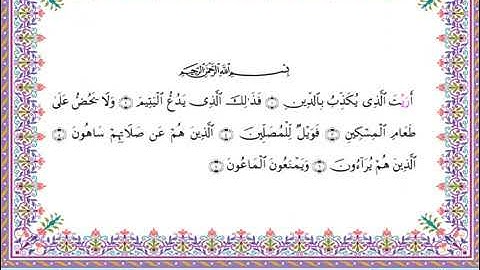 بِسْمِ ٱللَّهِ ٱلرَّحْمَٰنِ ٱلرَّحِيمِ
أَرَيْتَ ٱلَّذِى يُكَذِّبُ بِٱلدِّينِ ۝ فَذَٰلِكَ ٱلَّذِى يَدُعُّ ٱلْيَتِيمَ ۝ وَلَا يَحُضُّ عَلَىٰ
طَعَامِ ٱلْمِسْكِينِ ۝ فَوَيْلٌ لِّلْمُصَلِّينَ ۝ ٱلَّذِينَ هُمْ عَن صَلَاتِهِمْ سَاهُونَ ۝
ٱلَّذِينَ هُمْ يُرَآءُونَ ۝ وَيَمْنَعُونَ ٱلْمَاعُونَ ۝